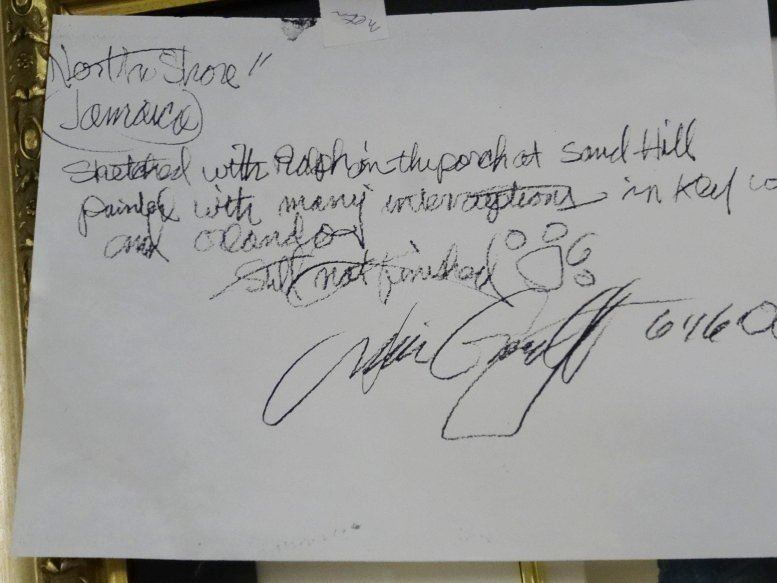 North Shore"
Jamaica
Sketched with Ralph on the porch at Sand Hill
painted with many interruptions in Key
and Orlando
Still not finished